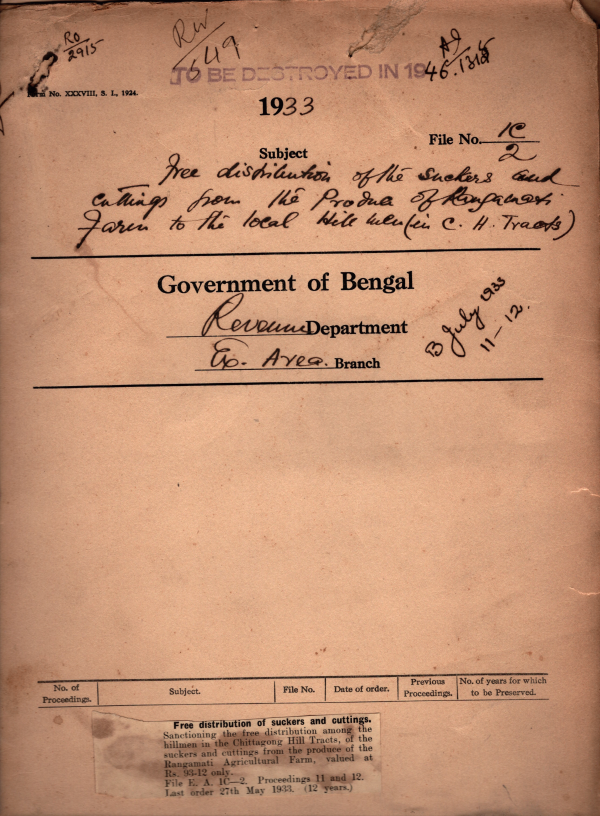 Ro
2915
Rev
649
AI
TO BE DESTROYED IN 19
Form No. XXXVIII, S. I., 1924.
1933
File No. 1C
2
Subject
Free distribution of the suckers and
cuttings from the Produce of Rangamati
Farm to the local Hill men (in C. H. Tracts)
Government of Bengal
Revenue Department
Ex. Area. Branch
B July 1933
11-12.
No. of Proceedings.
Subject.
File No.
Date of order.
Previous Proceedings.
No. of years for which to be Preserved.
Free distribution of suckers and cuttings.
Sanctioning the free distribution among the
hillmen in the Chittagong Hill Tracts, of the
suckers and cuttings from the produce of the
Rangamati Agricultural Farm, valued at
Rs. 93-12 only.
File E. A. 1C—2. Proceedings 11 and 12.
Last order 27th May 1933. (12 years.)